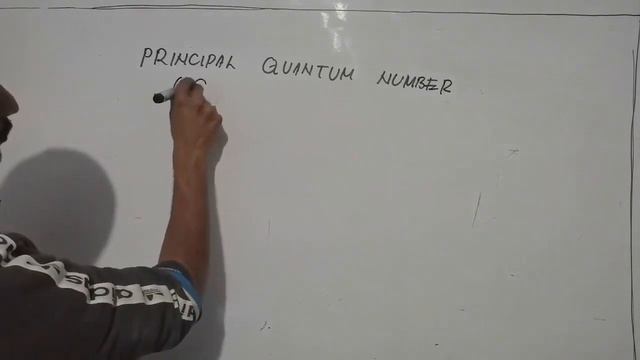 PRINCIPAL QUANTUM NUMBER